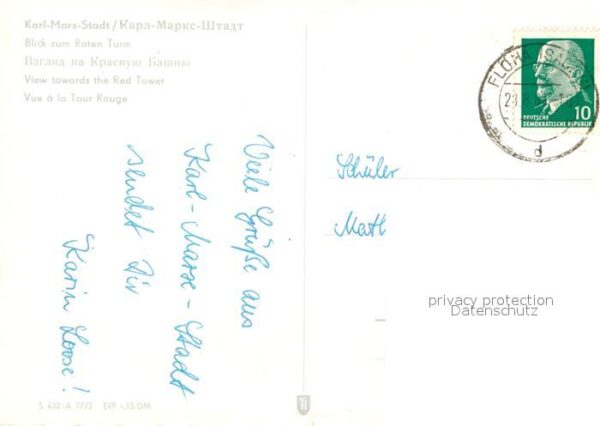 Karl-Marx-Stadt / Карл-Маркс-Штадт
Blick zum Roten Turm
Взгляд на Красную Башню
View towards the Red Tower
Vue à la Tour Rouge
Viele Grüße aus
Karl-Marx-Stadt
sendet Dir
Karin Loose!
S 432/A 7772 EVP -,15 DM
FLÖHA
d
DEUTSCHE
DEMOKRATISCHE REPUBLIK
10
Schüler
Matl
privacy protection
Datenschutz